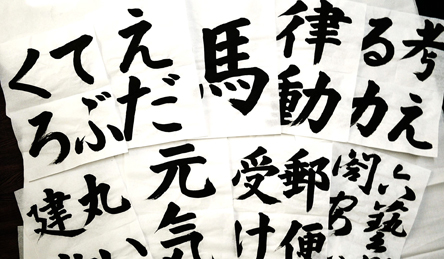 考え
る力
律動
馬
えだ
てぶ
くろ
六藝
郵便
受け
元気
丸い
建